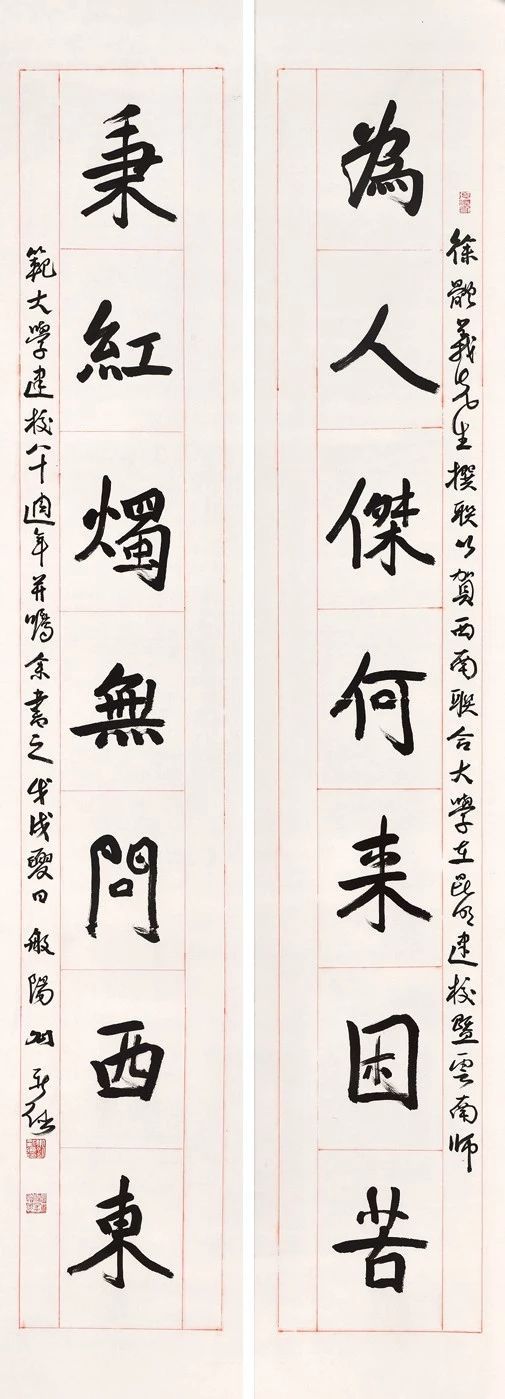 徐義先生撰聯以賀西南聯合大學在昆明建校暨雲南師
為人傑何来困苦
秉紅燭無問西東
範大學建校八十週年并囑余書之戊戌夏日般陽